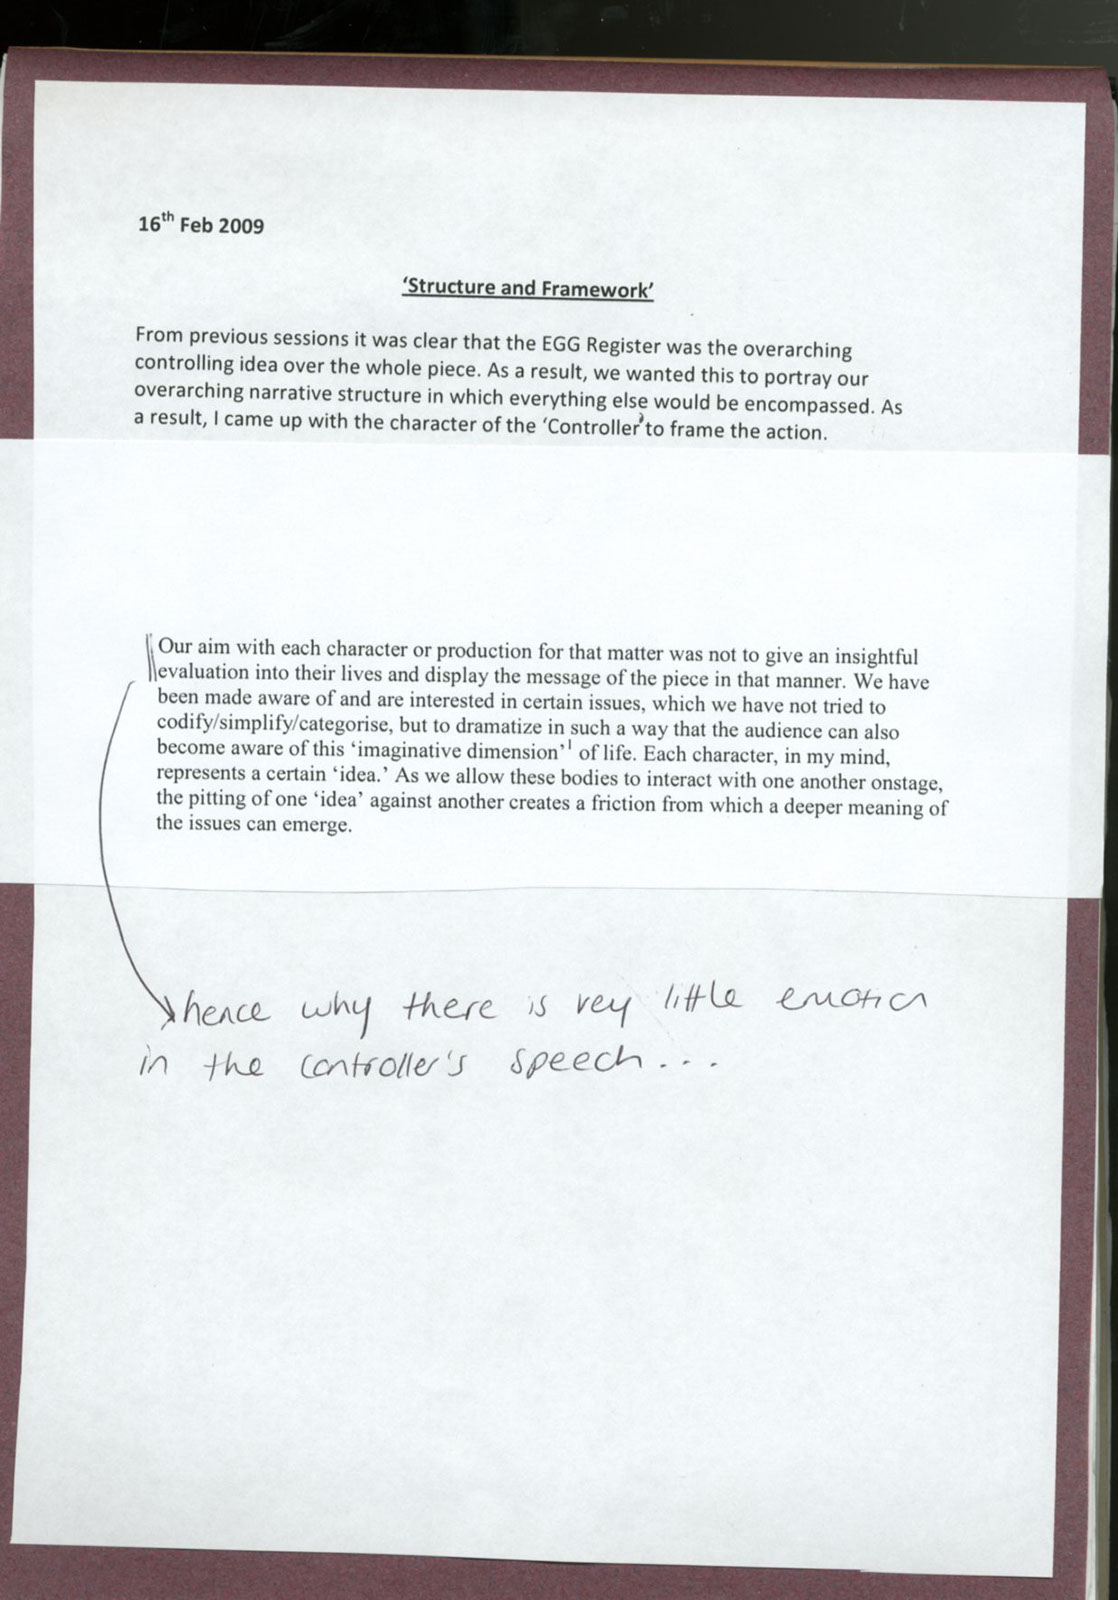 16th Feb 2009
‘Structure and Framework’
From previous sessions it was clear that the EGG Register was the overarching
controlling idea over the whole piece. As a result, we wanted this to portray our
overarching narrative structure in which everything else would be encompassed. As
a result, I came up with the character of the ‘Controller’ to frame the action.
Our aim with each character or production for that matter was not to give an insightful
evaluation into their lives and display the message of the piece in that manner. We have
been made aware of and are interested in certain issues, which we have not tried to
codify/simplify/categorise, but to dramatize in such a way that the audience can also
become aware of this ‘imaginative dimension’1 of life. Each character, in my mind,
represents a certain ‘idea.’ As we allow these bodies to interact with one another onstage,
the pitting of one ‘idea’ against another creates a friction from which a deeper meaning of
the issues can emerge.
hence why there is vey little emotion
in the controller's speech...